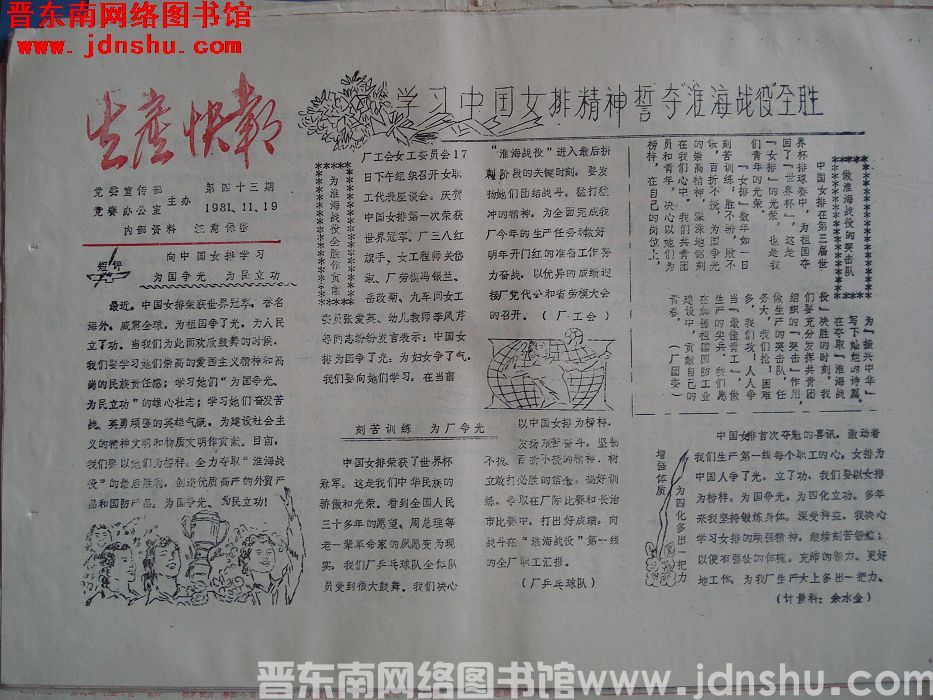 晋东南网络图书馆
www.jdnshu.com
生产快报
党委宣传部
党委办公室
主办
第四十三期
1981.11.19
内部资料 注意保密
学习中国女排精神誓夺“淮海战役”全胜
短评
向中国女排学习
为国争光 为民立功
最近,中国女排荣获世界冠军,誉名
海外,威震全球,为祖国争了光,为人民
立了功。当我们为此而欢欣鼓舞的时候,
我们要学习她们崇高的爱国主义精神和高
尚的民族责任感;学习她们“为国争光、
为民立功”的雄心壮志;学习她们奋发苦
战、英勇顽强的英雄气概,为建设社会主
义的精神文明和物质文明作贡献。目前,
我们要以她们为榜样,全力夺取“淮海战
役”的最后胜利,创造优质高产的外贸产
品和国防产品,为国争光,为民立功!
为淮海战役全胜作贡献
厂工会女工委员会17
日下午组织召开女职
工代表座谈会,庆贺
中国女排第一次荣获
世界冠军。厂三八红
旗手、女工程师关俗
淑、厂劳模冯银兰、
岳改菊、九车间女工
委员张爱英、幼儿教师李凤芹
等同志纷纷发言表示:中国女
排为国争了光,为妇女争了气,
我们要向她们学习。在当前
“淮海战役”进入最后拼
刺阶段的关键时刻,要发
扬她们团结战斗、猛打猛
冲的精神,为全面完成我
厂今年的生产任务和做好
明年开门红的准备工作努
力奋战,以优异的成绩迎
接厂党代会和省劳模大会
的召开。(厂工会)
做淮海战役的突击队
中国女排在第三届世
界杯排球赛中,为祖国夺
回了“世界杯”,这是
“女排”的光荣,也是我
们青年的光荣。
“女排”数年如一日
刻苦训练,胜不骄,败不
馁,百折不挠,为国争光
的崇高精神,深深地铭刻
在我们心中。我们共青团
员和青年,决心以她们为
榜样,在自己的岗位上,
为“振兴中华”
写下灿烂的诗篇。
在夺取“淮海战
役”决胜的时刻,我
们要充分发挥共青团
组织的“突击”作用,
做生产的突击队,任
务大,我们抢!困难
多,我们攻!人人争
当“最佳青工”,做
生产的尖兵。我们愿
在加强祖国国防工业
建设中,贡献自己的
青春。 (厂团委)
刻苦训练 为厂争光
中国女排荣获了世界杯
冠军。这是我们中华民族的
骄傲和光荣。看到全国人民
三十多年的愿望、周总理等
老一辈革命家的夙愿变为现
实。我们厂乒乓球队全体队
员受到很大鼓舞。我们决心
以中国女排为榜样,
发扬艰苦奋斗、坚韧
不拔、百折不挠的精神,树
立敢打必胜的信念,搞好训
练,争取在厂际比赛和长治
市比赛中,打出好成绩,向
战斗在“淮海战役”第一线
的全厂职工汇报。
(厂乒乓球队)
增强体质
为四化多出一把力
中国女排首次夺魁的喜讯,激动着
我们生产第一线每个职工的心。女排为
中国人争了光,立了功。我们要以女排
为榜样,为国争光,为四化立功。多年
来我坚持锻炼身体,深受裨益。我决心
学习女排的顽强精神,继续刻苦锻炼,
以便有强壮的体魄、充沛的精力,更好
地工作,为我厂生产大上多出一把力。
(计量科:余水金)
晋东南网络图书馆www.jdnshu.com